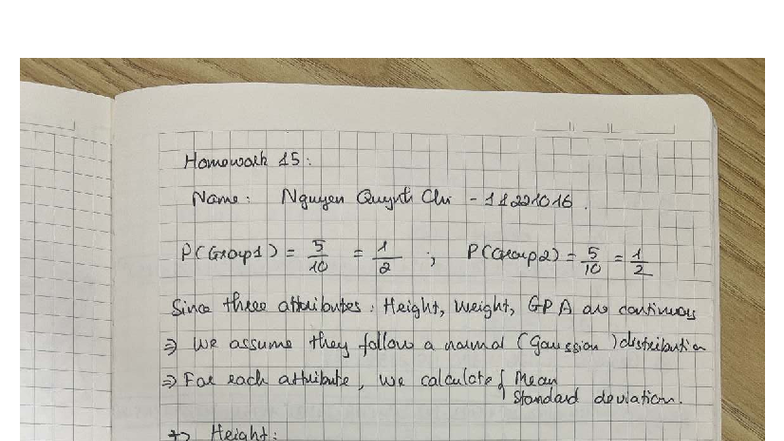 Homework 15:
Name: Nguyen Quynh Chi - 11221016.
P(Group1) = 5/10 = 1/2 ; P(Group2) = 5/10 = 1/2
Since three attributes: Height, Weight, GPA are continuous
⇒ We assume they follow a normal (Gaussian) distribution
⇒ For each attribute, we calculate { Mean
Standard deviation.
+> Height: